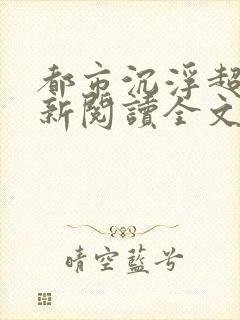 都市沉浮超
新閱讀全文
晴空藍兮